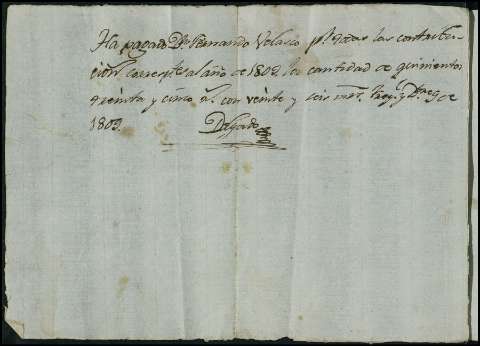 Ha pagado Dn Fernando Velasco pr todas las contribu-
cions correspte al año de 1802 la cantidad de quinientos
treinta y cinco rs con veinte y seis mrs
1803.
Delgado